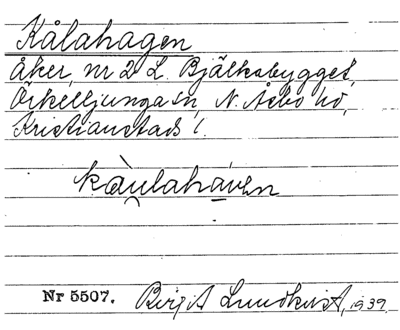 Kålahagen
Åker, nr 2 L. Bjälkabygget,
Örkelljunga sn, N. Åsbo hd,
Kristianstads l.
kàulahá̱ven
Nr 5507. Birgit Lundkvist, 1939.